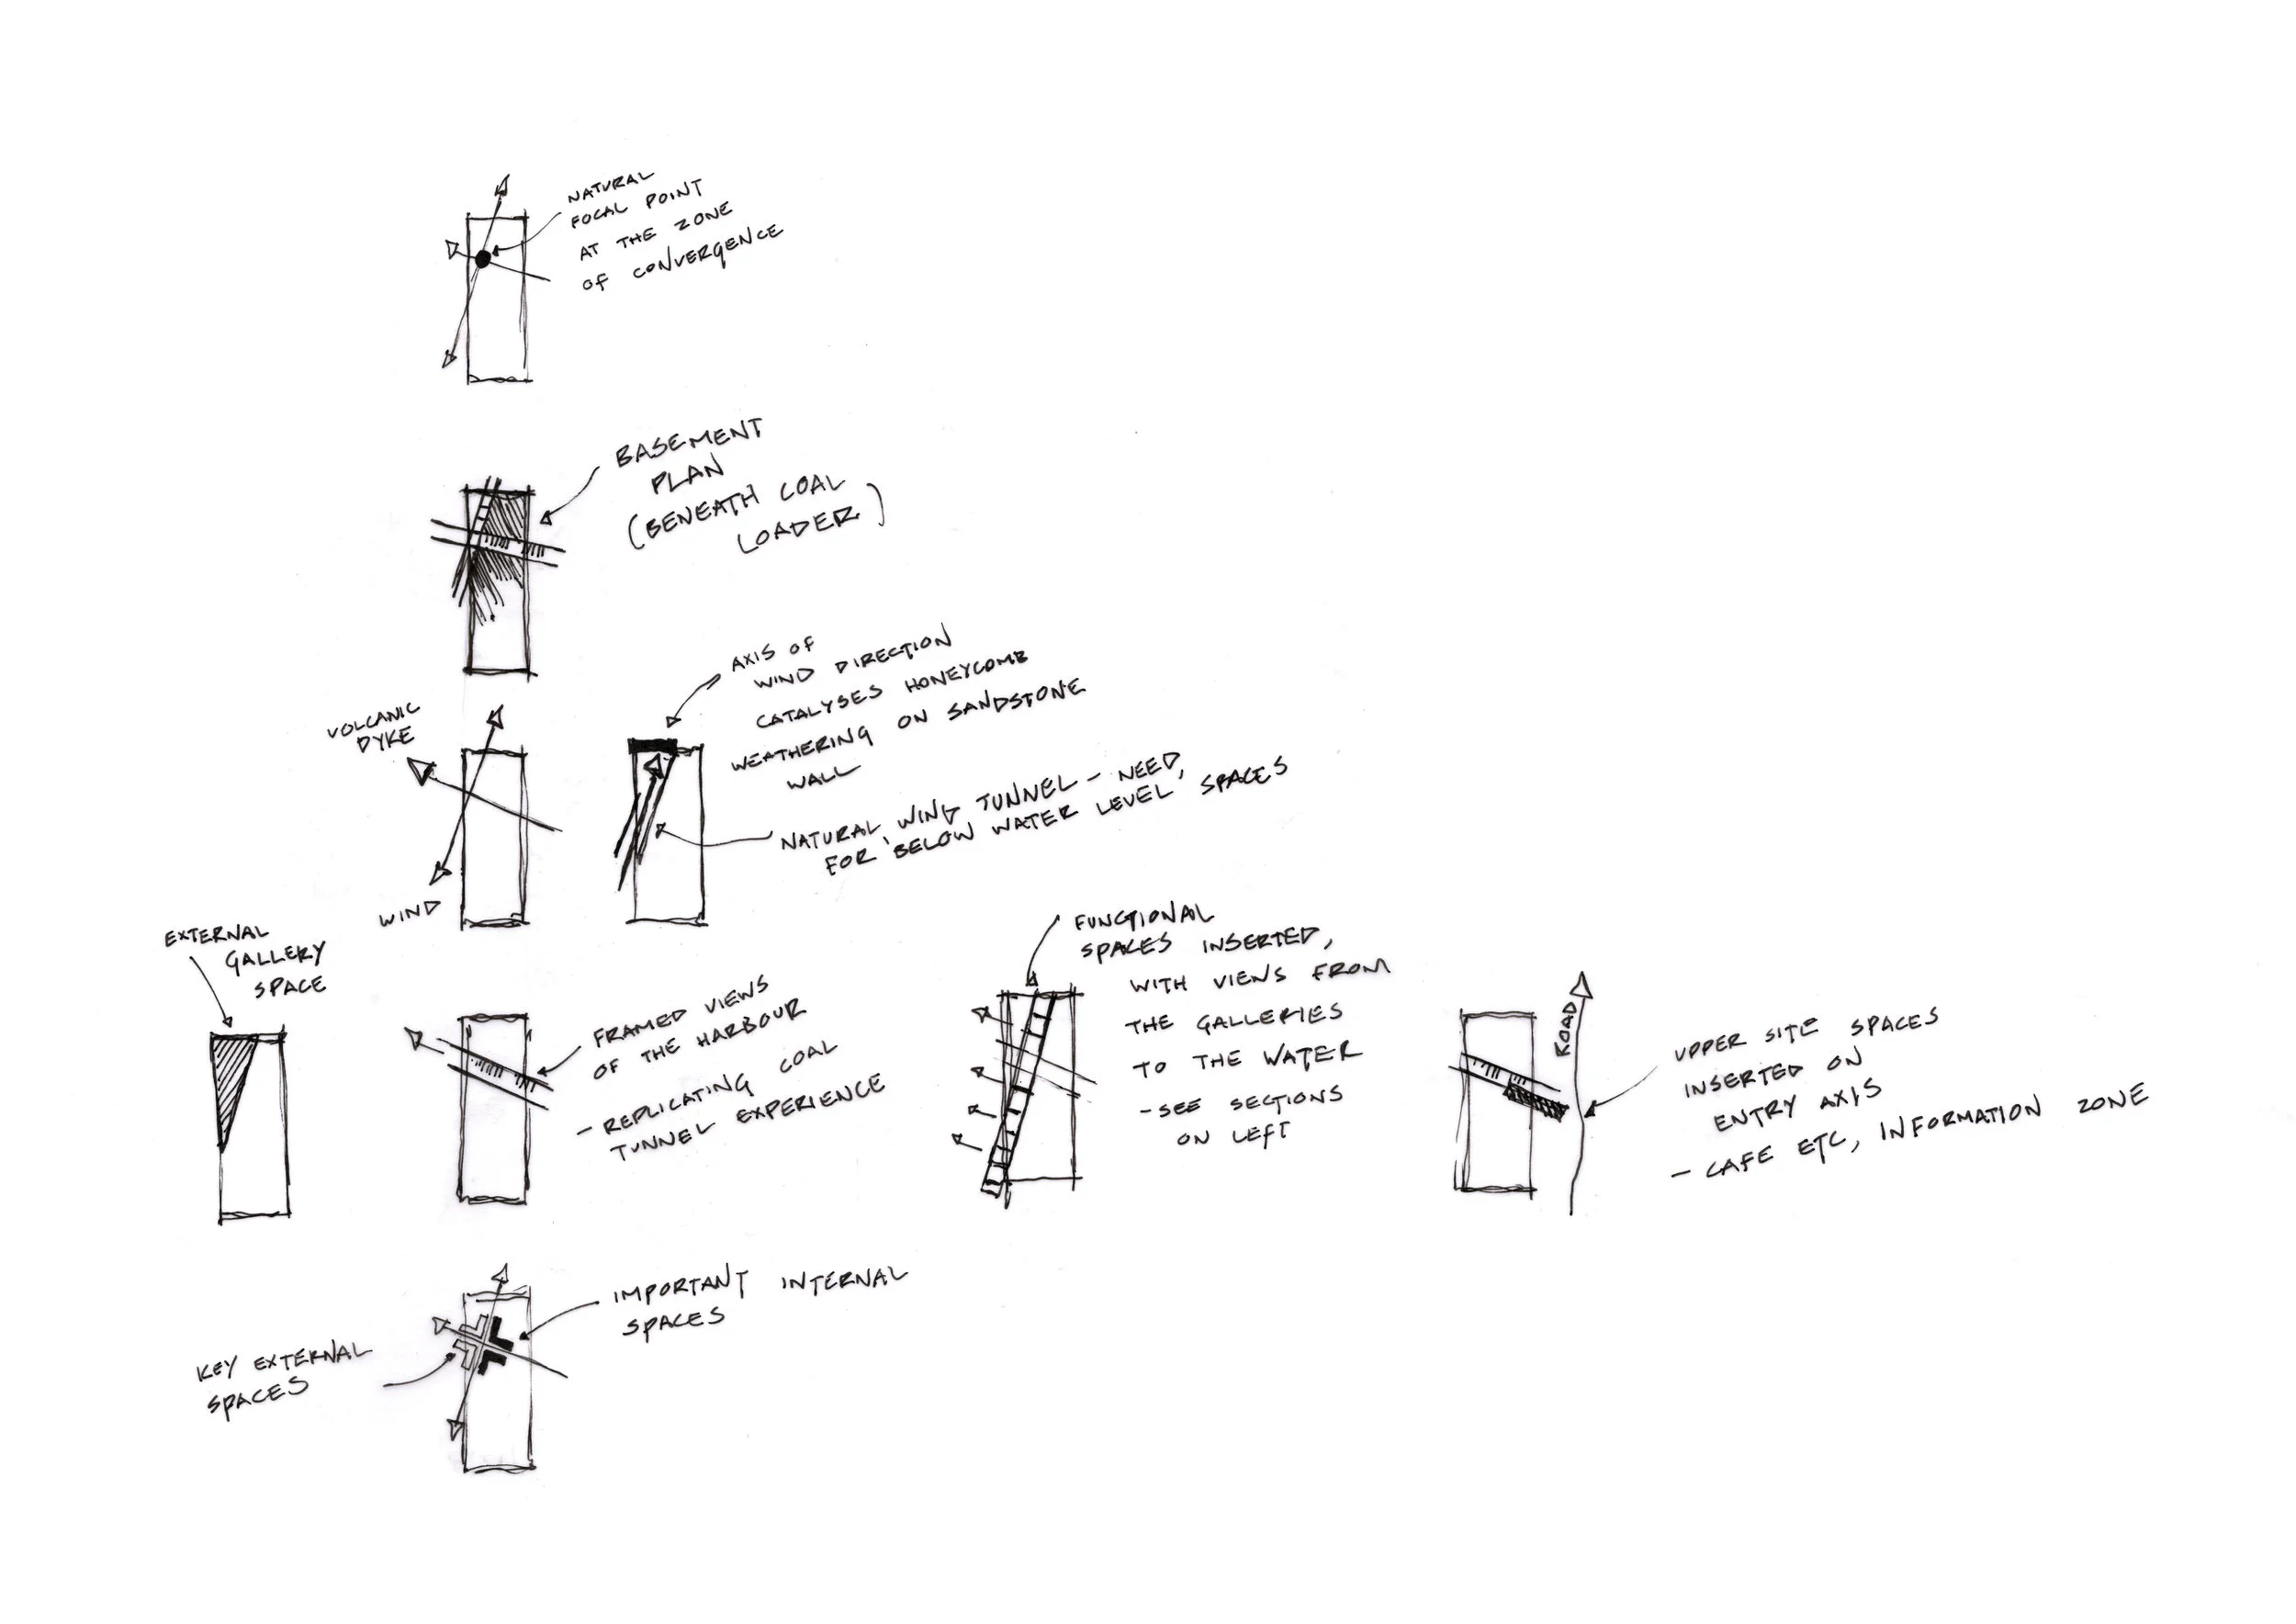 NATURAL
FOCAL POINT
AT THE ZONE
OF CONVERGENCE
BASEMENT
PLAN
(BENEATH COAL
LOADER)
VOLCANIC
DYKE
WIND
AXIS OF
WIND DIRECTION
CATALYSES HONEYCOMB
WEATHERING ON SANDSTONE
WALL
NATURAL WIND TUNNEL - NEED,
FOR 'BELOW WATER LEVEL' SPACES
EXTERNAL
GALLERY
SPACE
FRAMED VIEWS
OF THE HARBOUR
- REPLICATING COAL
TUNNEL EXPERIENCE
FUNCTIONAL
SPACES INSERTED,
WITH VIEWS FROM
THE GALLERIES
TO THE WATER
- SEE SECTIONS
ON LEFT
ROAD
UPPER SITE SPACES
INSERTED ON
ENTRY AXIS
- CAFE ETC, INFORMATION ZONE
KEY EXTERNAL
SPACES
IMPORTANT INTERNAL
SPACES